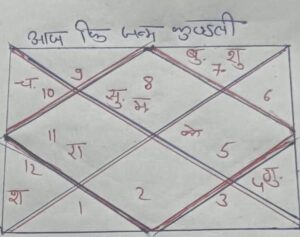 आज कि जन्म कुण्डली
9 बु. शु
च. 8 7
10 सु. म 6
11 के
रा 5
12 गु.
श 2 3 4
1